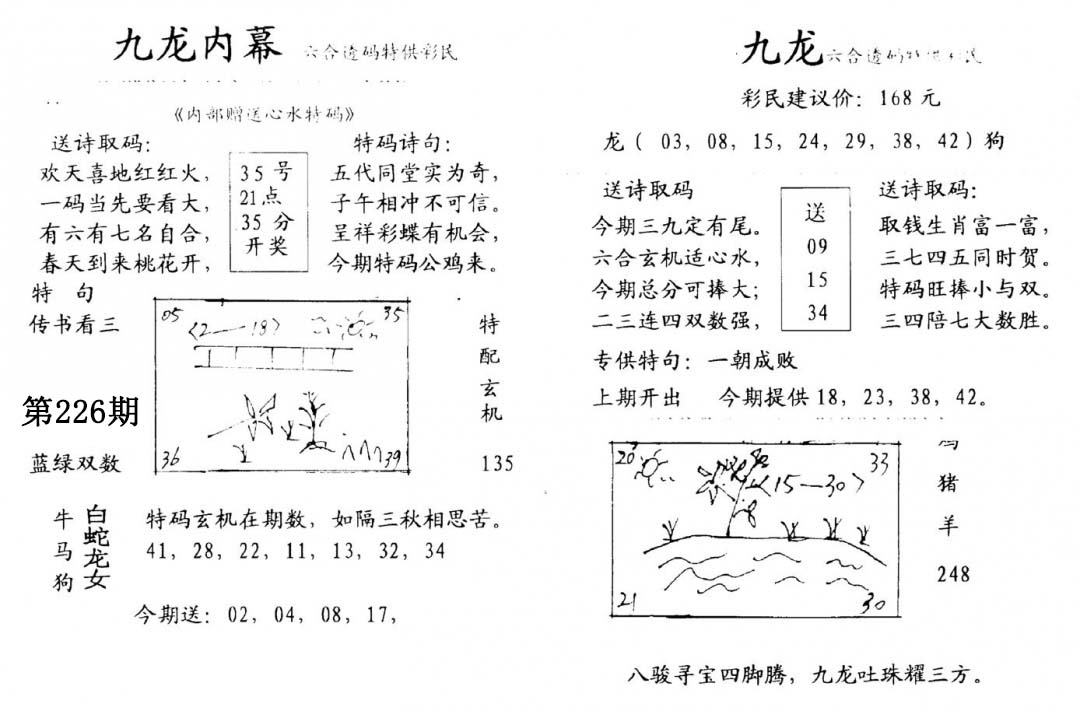 九龙内幕 六合透码特供彩民
《内部赠送心水特码》
送诗取码:
欢天喜地红红火,
一码当先要看大,
有六有七名自合,
春天到来桃花开,
35号
21点
35分
开奖
特码诗句:
五代同堂实为奇,
子午相冲不可信。
呈祥彩蝶有机会,
今期特码公鸡来。
特 句
传书看三
第226期
蓝绿双数
05
35
〈2—18〉
36
39
特
配
玄
机
135
牛
马
狗
白
蛇
龙
女
特码玄机在期数, 如隔三秋相思苦。
41, 28, 22, 11, 13, 32, 34
今期送: 02, 04, 08, 17,
九龙 六合透码特供彩民
彩民建议价: 168元
龙( 03, 08, 15, 24, 29, 38, 42)狗
送诗取码
今期三九定有尾。
六合玄机适心水,
今期总分可捧大;
二三连四双数强,
送
09
15
34
送诗取码:
取钱生肖富一富,
三七四五同时贺。
特码旺捧小与双。
三四陪七大数胜。
专供特句: 一朝成败
上期开出 今期提供18, 23, 38, 42。
20
33
〈15—30〉
21
30
猪
羊
248
八骏寻宝四脚腾, 九龙吐珠耀三方。